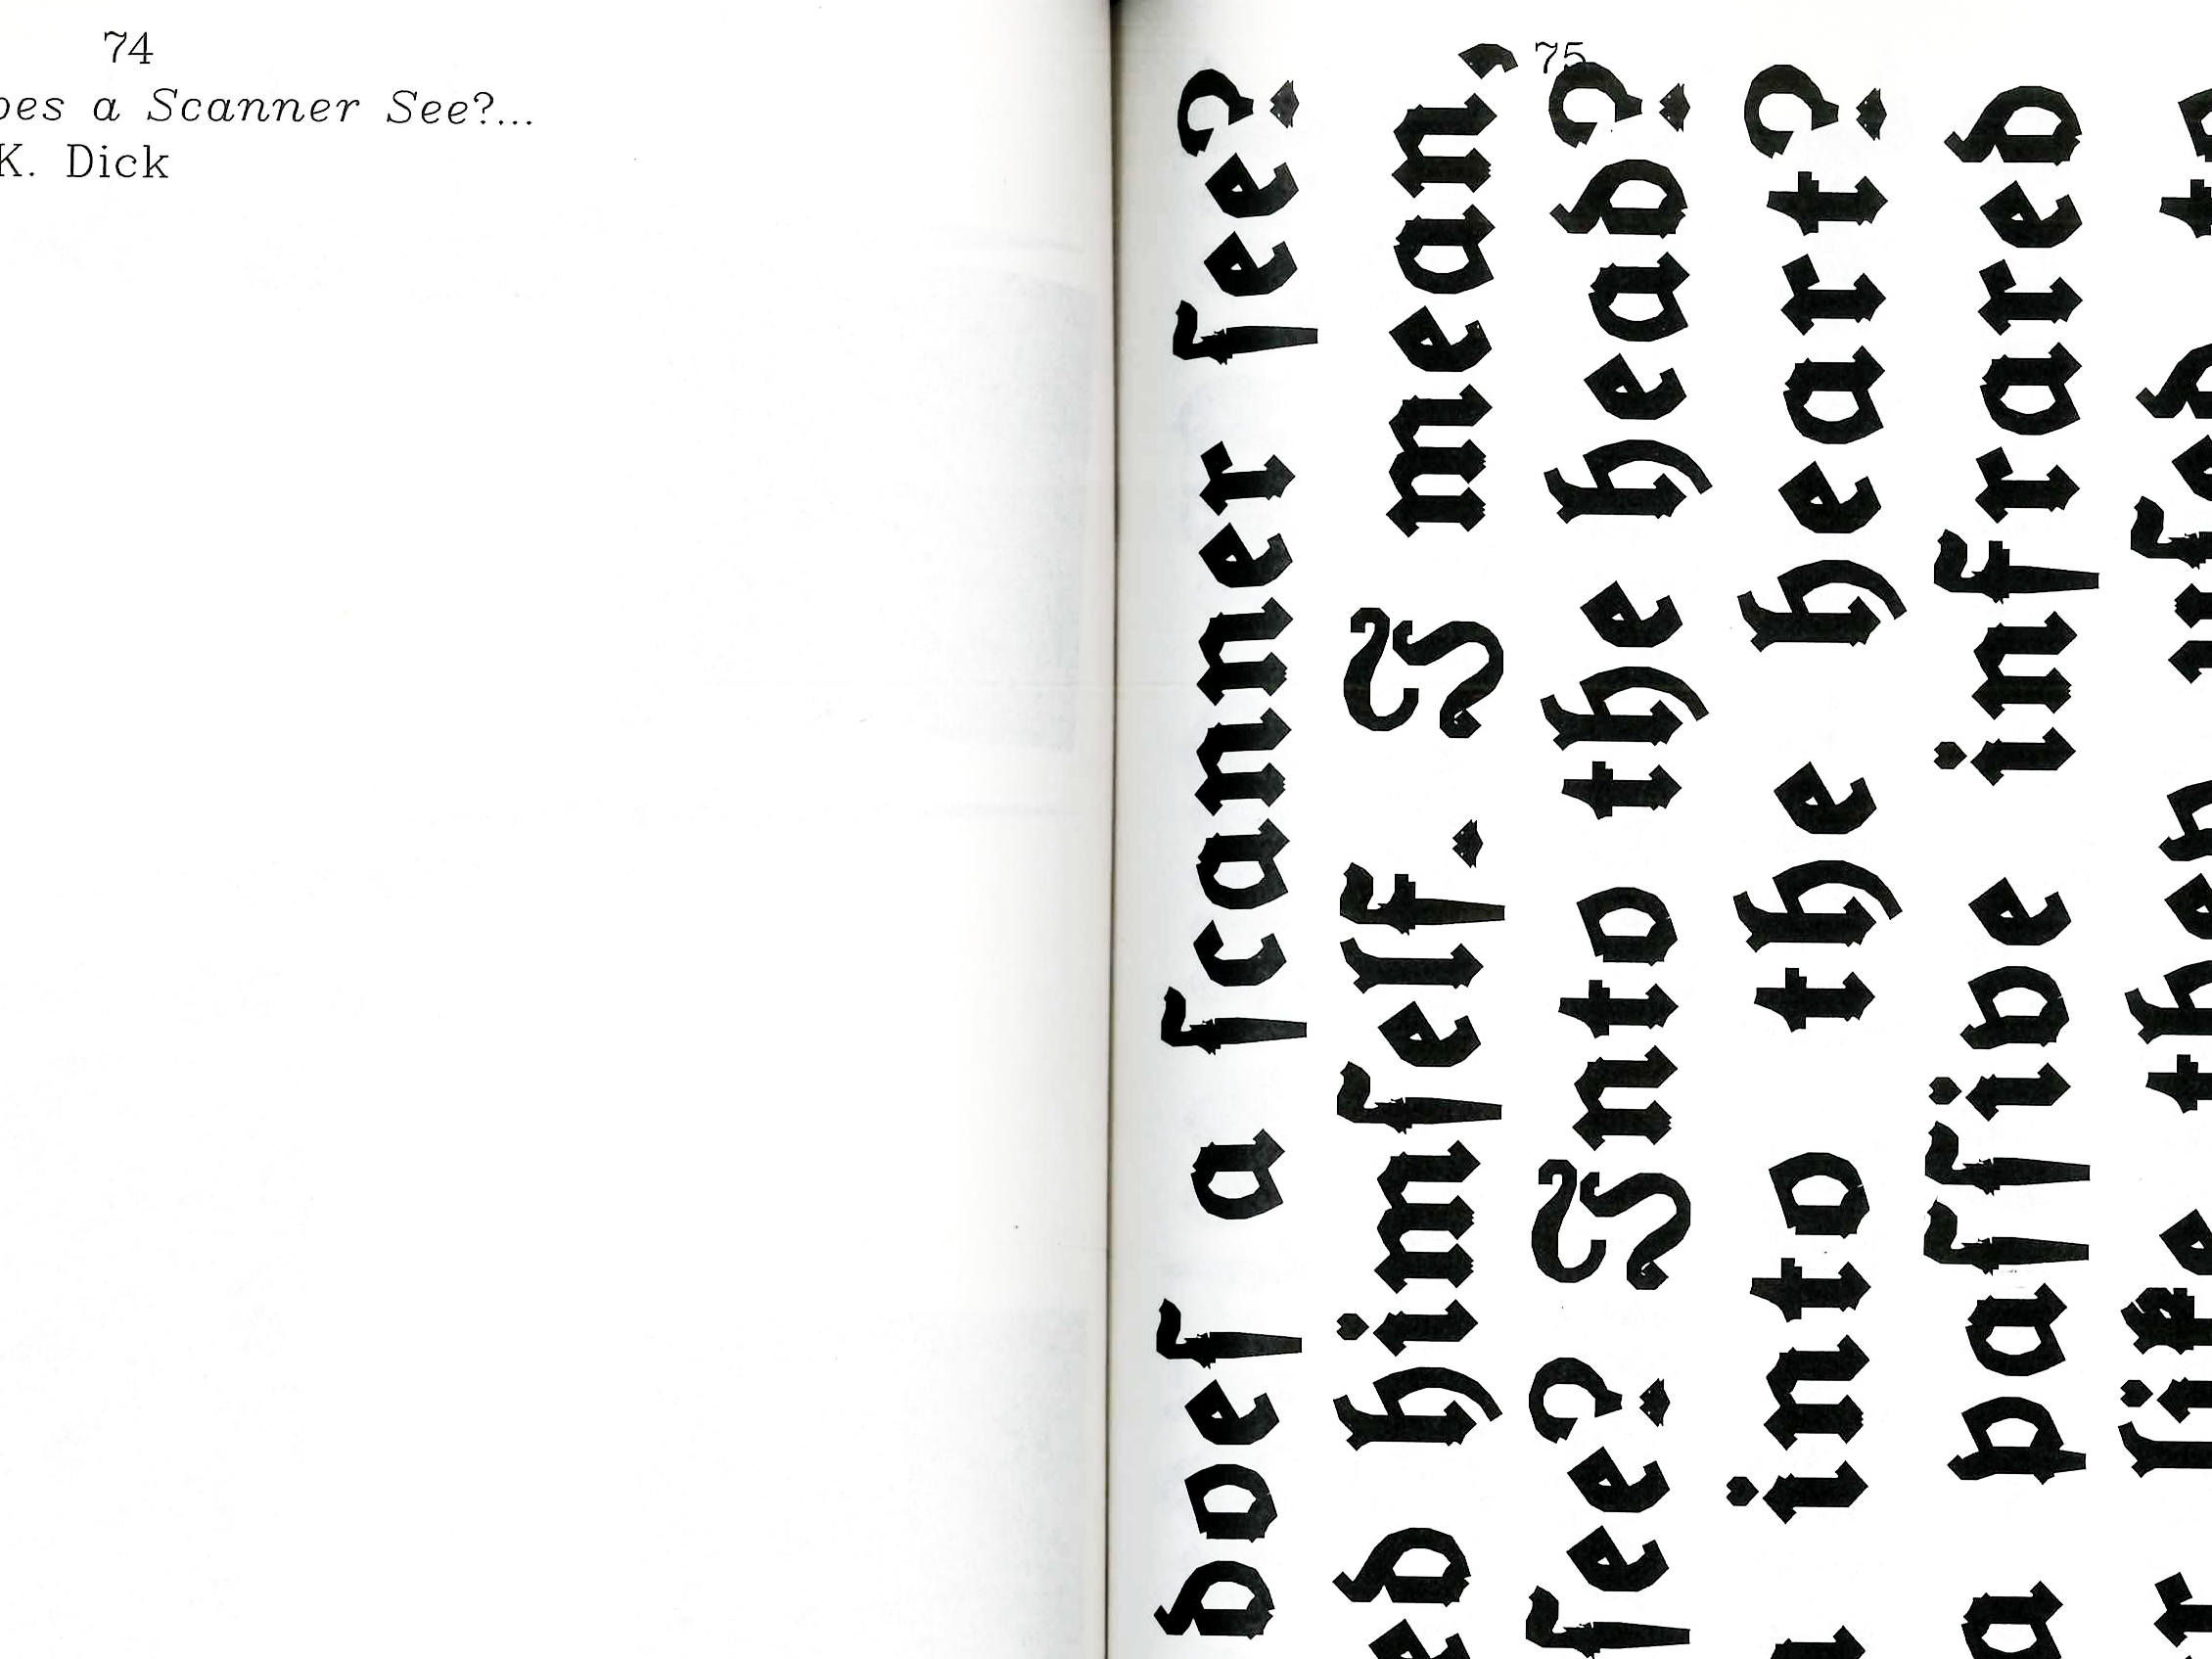 74
oes a Scanner See?...
K. Dick
75
doeſ a ſcanner ſee?
ed himſelf. I mean,
ſee? Into the head?
into the heart?
a paſſive infrared
r like they uſed to